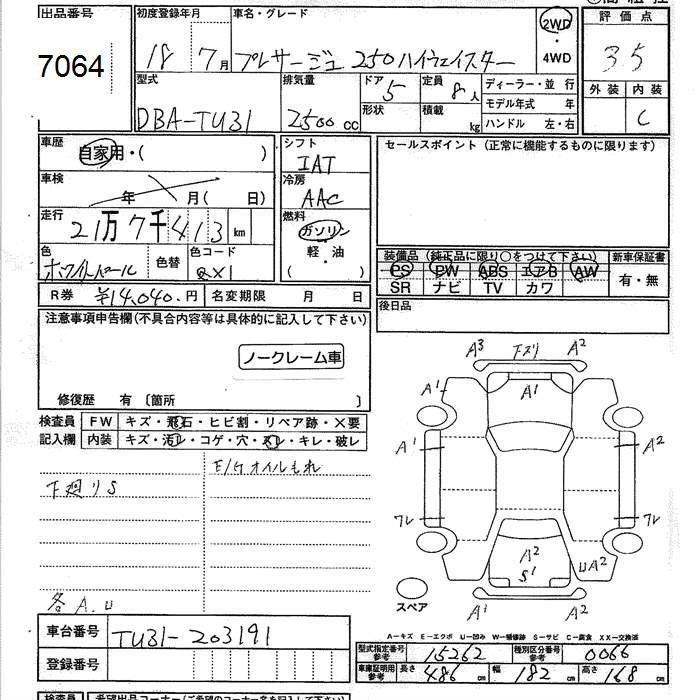 出品番号
7064
初度登録年月
18 7月
車名・グレード
プレサージュ 250ハイウェイスター
2WD
・
4WD
評価点
3.5
外装 内装
C
型式
DBA-TU31
排気量
2500 cc
ドア
5
形状
定員
8人
積載
kg
ディーラー・並行
モデル年式 年
ハンドル 左・右
車歴
自家用・( )
車検
年 月( 日)
走行
21万7千413 km
色
ホワイトパール
色替
色コード
QX1
シフト
IAT
冷房
AAC
燃料
ガソリン
・
軽・油
( )
セールスポイント (正常に機能するものに限ります)
装備品 (純正品に限り○をつけて下さい)
PS PW ABS エアB AW
SR ナビ TV カワ
新車保証書
有・無
R券 ¥14,040.円
名変期限 月 日
後日品
注意事項申告欄(不具合内容等は具体的に記入して下さい)
ノークレーム車
修復歴 有〔箇所 〕
検査員
記入欄
FW キズ・飛石・ヒビ割・リペア跡・×要
内装 キズ・汚レ・コゲ・穴・スレ・キレ・破レ
E/Gオイルもれ
下廻りS
各A.U
A3 下スリ A2
A1 A1
A1 A2
フレ フレ
A2 UA2
S1
A1 A2
スペア
A－キズ E－エクボ U－凹み W－補修跡 S－サビ C－腐食 XX－交換済
車台番号 TU31-203191
登録番号
型式指定番号
参考
15262
種別区分番号
参考
0066
車庫証明用
参考
長さ 486 cm 幅 182 cm 高さ 168 cm
検査員
希望出品コーナー(ご希望のコーナー名を記入して下さい)